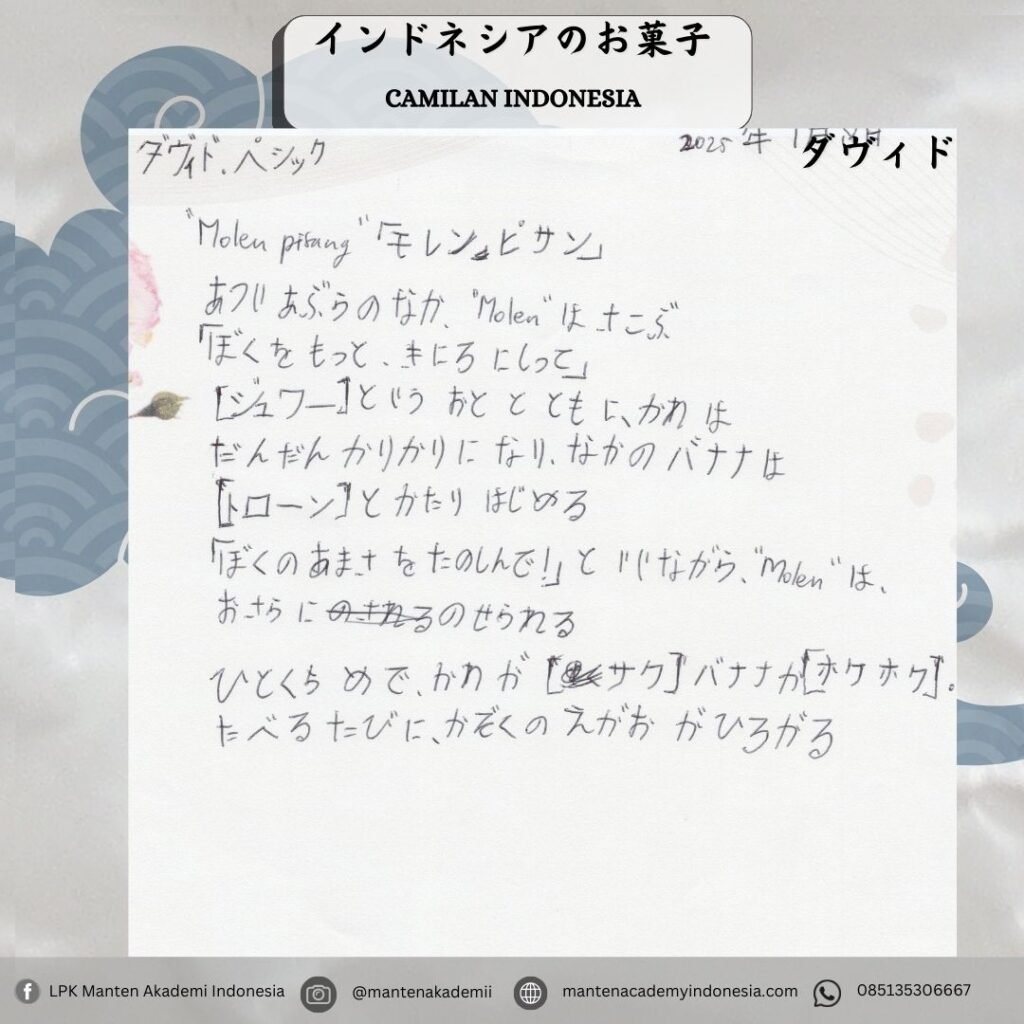 インドネシアのお菓子
CAMILAN INDONESIA
ダヴィド.ペシック
2025年1月8日
ダヴィド
"Molen pisang"「モレン ピサン」
あついあぶらのなか、"Molen"はさこぶ
「ぼくをもっと、きにろにしって」
[ジュワー]という おと と ともに、かれは
だんだん かりかりに なり、なかの バナナは
[トローン]と かたり はじめる
「ぼくのあまさ をたのしんで!」と いいながら、"Molen"は、
おさらに のせられる
ひとくち めで、かれが [サク] バナナが[ホケホク]。
たべる たびに、かぞくの えがお がひろがる
LPK Manten Akademi Indonesia
@mantenakademii
mantenacademyindonesia.com
085135306667